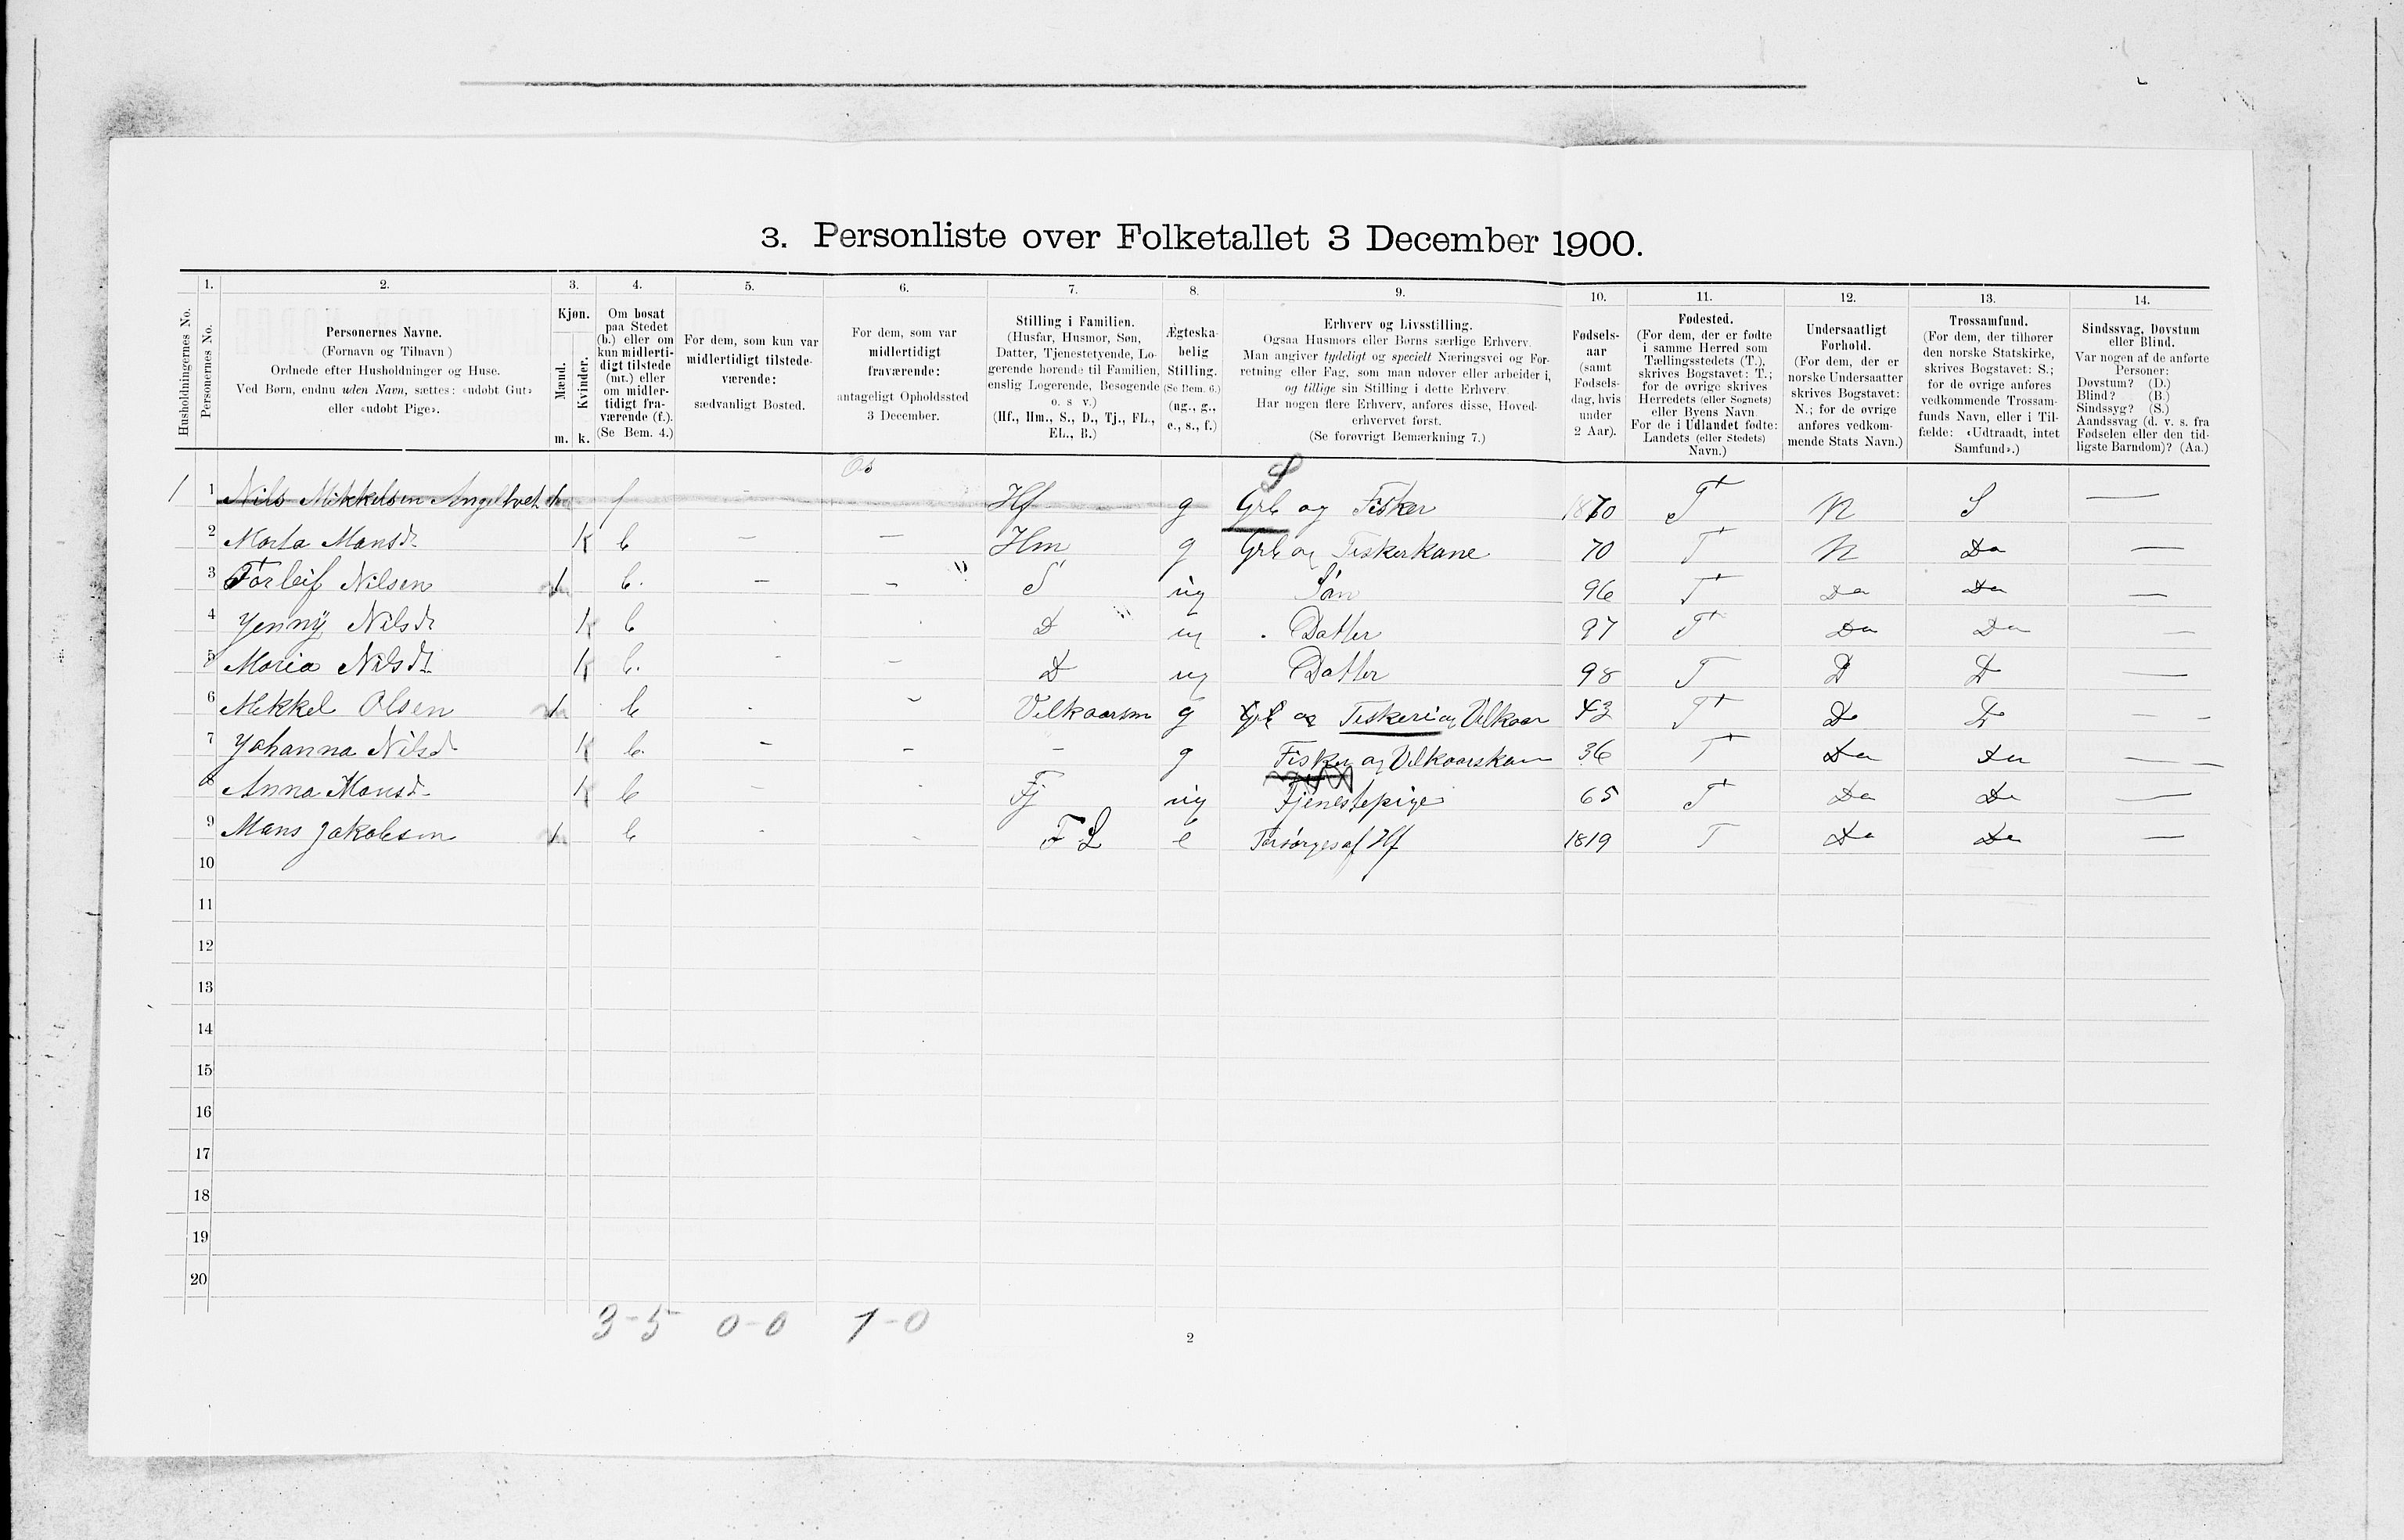 3. Personliste over Folketallet 3 December 1900.
Husholdningernes No.
1. Personernes No.
2. Personernes Navne. (Fornavn og Tilnavn) Ordnede efter Husholdninger og Huse. Ved Børn, endnu uden Navn, sættes: «udøbt Gut» eller «udøbt Pige».
3. Kjøn. Mænd. m. Kvinder. k.
4. Om bosat paa Stedet (b.) eller om kun midlertidigt tilstede (mt.) eller om midlertidigt fraværende (f.). (Se Bem. 4.)
5. For dem, som kun var midlertidigt tilstedeværende: sædvanligt Bosted.
6. For dem, som var midlertidigt fraværende: antageligt Opholdssted 3 December.
7. Stilling i Familien. (Husfar, Husmor, Søn, Datter, Tjenestetyende, Logerende hørende til Familien, enslig Logerende, Besøgende o. s. v.) (Hf., Hm., S., D., Tj., FL., EL., B.)
8. Ægteskabelig Stilling. (Se Bem. 6.) (ug., g., e., s., f.)
9. Erhverv og Livsstilling. Ogsaa Husmors eller Børns særlige Erhverv. Man angiver tydeligt og specielt Næringsvei og Forretning eller Fag, som man udøver eller arbeider i, og tillige sin Stilling i dette Erhverv. Har nogen flere Erhverv, anføres disse, Hovederhvervet først. (Se forøvrigt Bemærkning 7.)
10. Fødselsaar (samt Fødselsdag, hvis under 2 Aar).
11. Fødested. (For dem, der er fødte i samme Herred som Tællingsstedets (T.), skrives Bogstavet: T.; for de øvrige skrives Herredets (eller Sognets) eller Byens Navn. For de i Udlandet fødte: Landets (eller Stedets) Navn.)
12. Undersaatligt Forhold. (For dem, der er norske Undersaatter skrives Bogstavet: N.; for de øvrige anføres vedkommende Stats Navn.)
13. Trossamfund. (For dem, der tilhører den norske Statskirke, skrives Bogstavet: S.; for de øvrige anføres vedkommende Trossamfunds Navn, eller i Tilfælde: «Udtraadt, intet Samfund».)
14. Sindssvag, Døvstum eller Blind. Var nogen af de anførte Personer: Døvstum? (D.) Blind? (B.) Sindssyg? (S.) Aandssvag (d. v. s. fra Fødselen eller den tidligste Barndom)? (Aa.)
Os S
1 1 Nils Mikkelsen Angeltvet 1 f - Hf g Grb og Fisker 1870 T + N S —
2 Marta Mansdr K b — — Hm g Grb og Fiskerkone 70 T + N Do —
3 Torleif Nilsen 1 b. — — " S ug Søn 96 T + Do Do —
4 Jenny Nilsdr K b D " ug . Datter 97 T + Do Do —
5 Maria Nilsdr K b. - — D ug Datter 98 T D D —
6 Mikkel Olsen 1 b - - Velkaarsm g Grb og Fiskeri og Velkaar 43 T + Do D — -
7 Johanna Nilsd K b. — - — g Fisker og Velkaarskone 36 T + Do Do — —
8 Anna Mansd. K b - Tj ug Tjenestepige 65 T + Do Do —
9 Mans Jakobsen 1 b - - F L e Forsørges af Hf 1819 T Do Do —
10
11
12
13
14
15
16
17
18
19
20
3-5 0-0 1-0
2